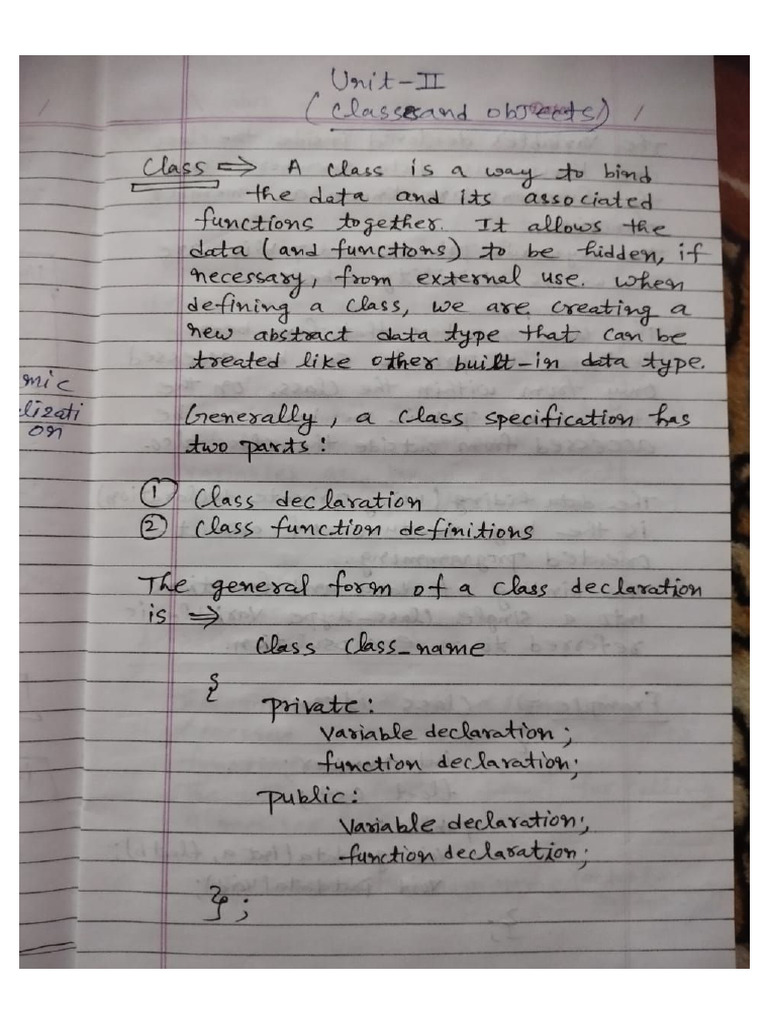 Unit-II
(Classes and objects)
Class ⇒ A class is a way to bind
the data and its associated
functions together. It allows the
data (and functions) to be hidden, if
necessary, from external use. When
defining a class, we are creating a
new abstract data type that can be
treated like other built-in data type.
Generally, a class specification has
two parts:
① Class declaration
② Class function definitions
The general form of a class declaration
is ⇒
Class Class_name
{
private:
Variable declaration;
function declaration;
public:
Variable declaration;
function declaration;
};
mic
lizati
on